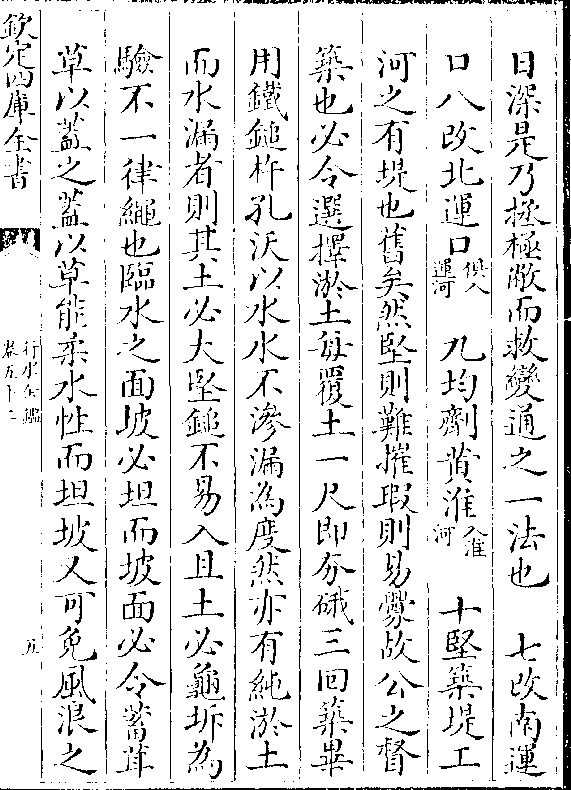 日深是乃拯極敝而救變通之一法也　七改南運
口八改北運口俱入運河　九均劑黄淮入淮河　十堅築堤工
河之有堤也舊矣然堅則難摧瑕則易釁故公之督
築也必令選擇淤土每覆土一尺即夯硪三回築畢
用鐵鎚杵孔沃以水水不滲漏為度然亦有純淤土
而水漏者則其土必大堅鎚不易入且土必龜坼為
驗不一律繩也臨水之面坡必坦而坡面必令蓄茸
草以蓋之蓋以草能柔水性而坦坡又可免風浪之
欽定四庫全書
行水金鑑
卷五十二
五